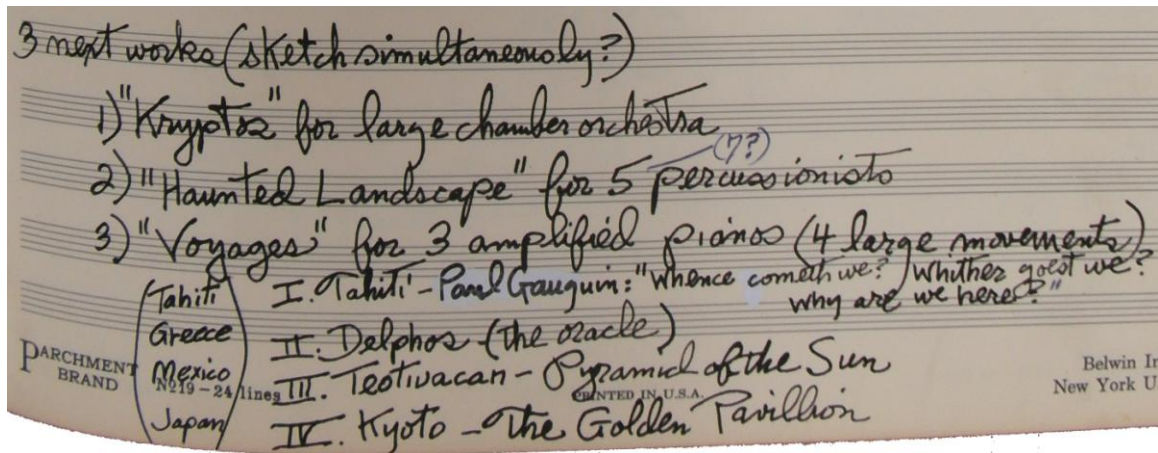 3 next works (sketch simultaneously?)
1) "Kryptos" for large chamber orchestra
(7?)
2) "Haunted Landscape" for 5 percussionists
3) "Voyages" for 3 amplified pianos (4 large movements)
(Tahiti) I. Tahiti - Paul Gauguin: "Whence cometh we? Whither goest we?
why are we here?"
Greece II. Delphos (the oracle)
Mexico III. Teotivacan - Pyramid of the Sun
Japan IV. Kyoto - The Golden Pavillion
PARCHMENT BRAND
No 19 - 24 lines
PRINTED IN U.S.A.
Belwin In
New York U